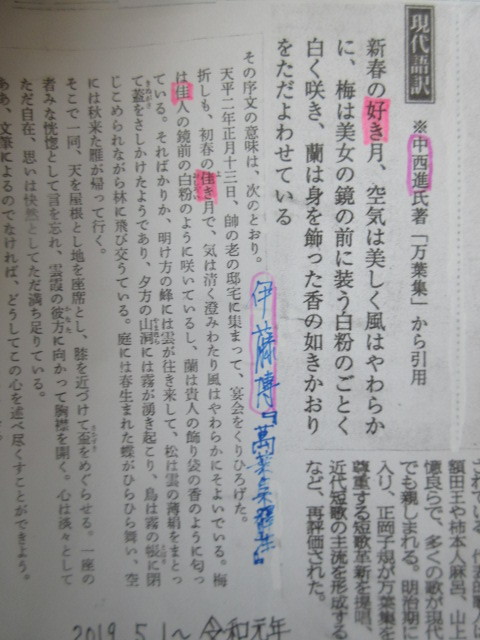 現代語訳
※中西進氏著「万葉集」から引用
新春の好き月、空気は美しく風はやわらか
に、梅は美女の鏡の前に装う白粉のごとく
白く咲き、蘭は身を飾った香の如きかおり
をただよわせている
されている。代表歌人に
額田王や柿本人麻呂、山上
憶良らで、多くの歌が現代
でも親しまれる。明治期に
入り、正岡子規が万葉集を
尊重する短歌革新を提唱、
近代短歌の主流を形成する
など、再評価された。
伊藤博「萬葉集釋注」
その序文の意味は、次のとおり。
天平二年正月十三日、帥の老の邸宅に集まって、宴会をくりひろげた。
折しも、初春の佳き月で、気は清く澄みわたり風はやわらかにそよいでいる。梅
は佳人の鏡前の白粉のように咲いているし、蘭は貴人の飾り袋の香のように匂っ
ている。そればかりか、明け方の峰には雲が往き来して、松は雲の薄絹をまとっ
て蓋をさしかけたようであり、夕方の山洞には霧が湧き起こり、鳥は霧の帳に閉
じこめられながら林に飛び交うている。庭には春生まれた蝶がひらひら舞い、空
には秋来た雁が帰って行く。
そこで一同、天を屋根とし地を座席とし、膝を近づけて盃をめぐらせる。一座の
者みな恍惚として言を忘れ、雲霞の彼方に向かって胸襟を開く。心は淡々として
ただ自在、思いは快然としてただ満ち足りている。
ああ、文筆によるのでなければ、どうしてこの心を述べ尽くすことができよう。
2019.5.1〜令和元年